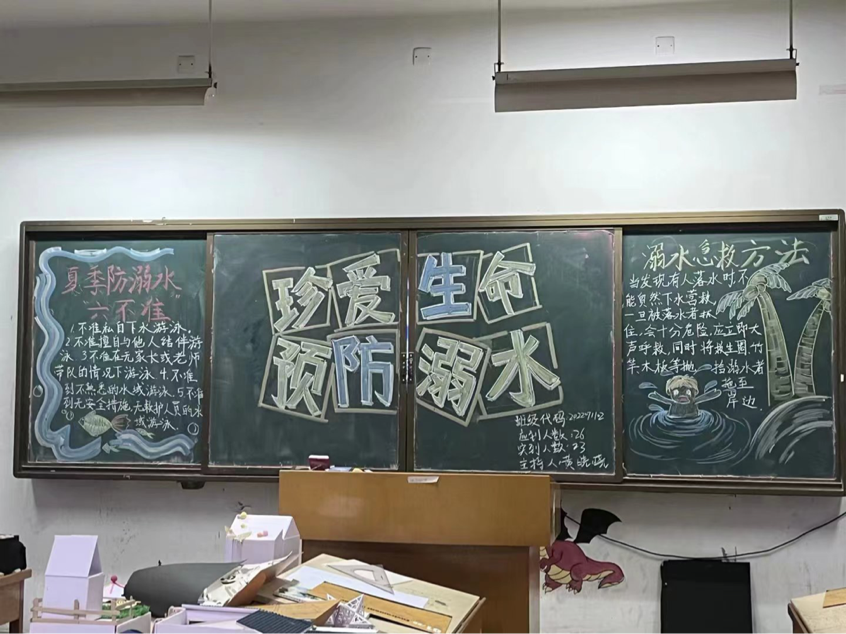 夏季防溺水
"六不准"
1.不准私自下水游泳.
2不准擅自与他人结伴游
泳 3不准在无家长或老师
带队的情况下游泳.4.不准
到不熟悉的水域游泳.5.不准
到无安全措施.无救护人员的水
域游泳.
珍爱生命
预防溺水
班级代码
应到人数:26
实到人数:23
主持人:黄
溺水急救方法
当发现有人落水时不
能贸然下水营救,
一旦被落水者
位,会十分危险,应立即大
声呼救,同时将救生圈.竹
竿木板等抛 给溺水者
拖至
岸边.